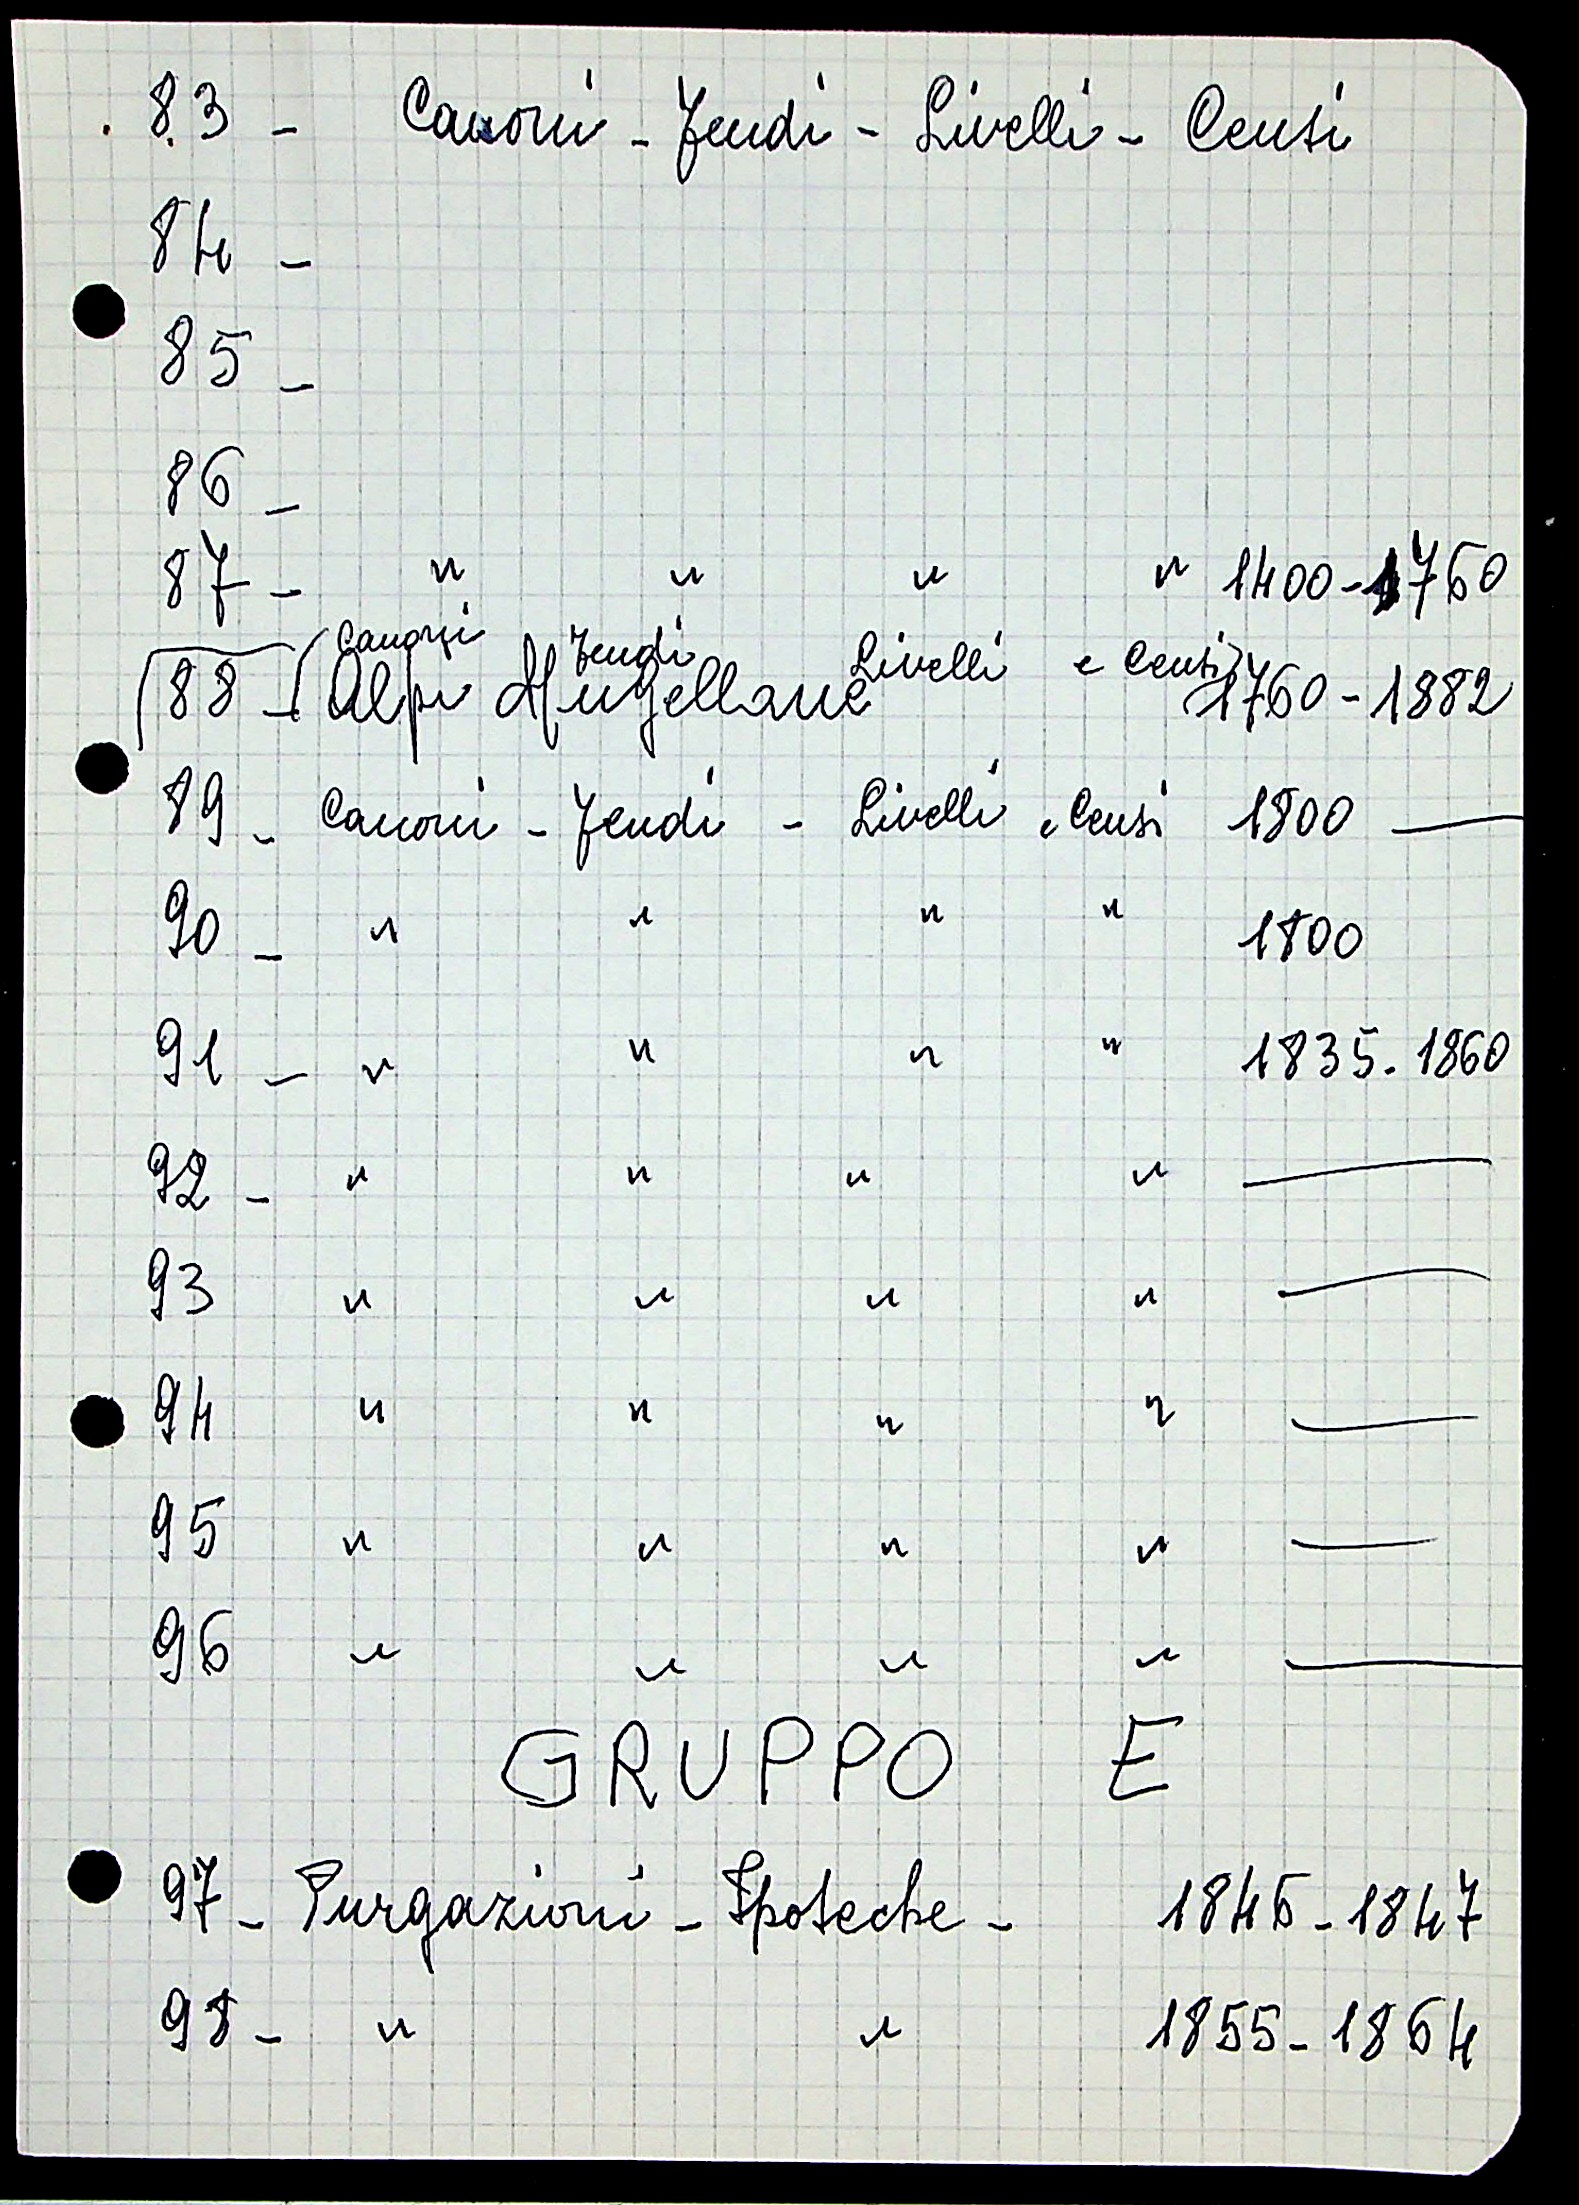 83 - Canoni - Feudi - Livelli - Censi
84 -
85 -
86 -
87 - " " " " 1400-1760
Canoni Feudi Livelli e Censi
88 - Alpi Mugellane 1760-1882
89 - Canoni - Feudi - Livelli e Censi 1800 —
90 - " " " " 1800
91 - " " " " 1835-1860
92 - " " " " —
93 " " " " —
94 " " " " —
95 " " " " —
96 " " " " —
GRUPPO E
97 - Purgazioni - Ipoteche - 1846-1847
98 - " " 1855-1864